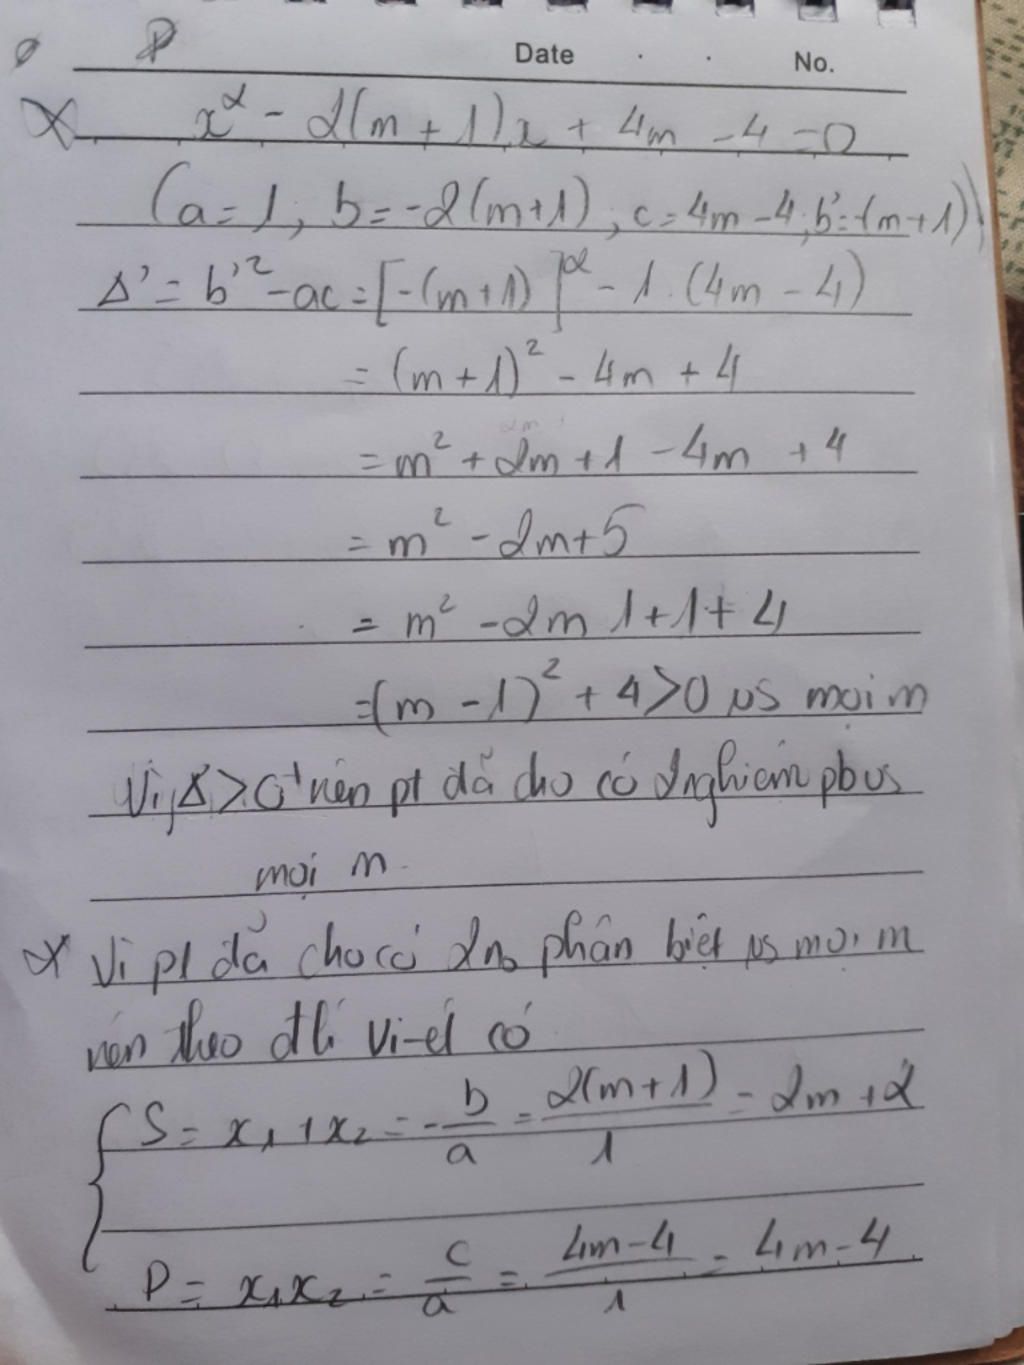 Date . . No.
x² - 2(m + 1)x + 4m - 4 = 0
(a = 1; b = -2(m+1); c = 4m - 4; b' = -(m+1))
Δ' = b'² - ac = [-(m+1)]² - 1.(4m - 4)
= (m+1)² - 4m + 4
= m² + 2m + 1 - 4m + 4
= m² - 2m + 5
= m² - 2m 1 + 1 + 4
= (m - 1)² + 4 > 0 vs mọi m
Vì Δ' > 0 nên pt đã cho có 2 nghiệm pb vs
mọi m.
Vì pt đã cho có 2no phân biệt vs mọi m
nên theo đlí Vi-ét có
S = x₁ + x₂ = -b/a = 2(m+1)/1 = 2m + 2
P = x₁x₂ = c/a = 4m-4/1 = 4m - 4